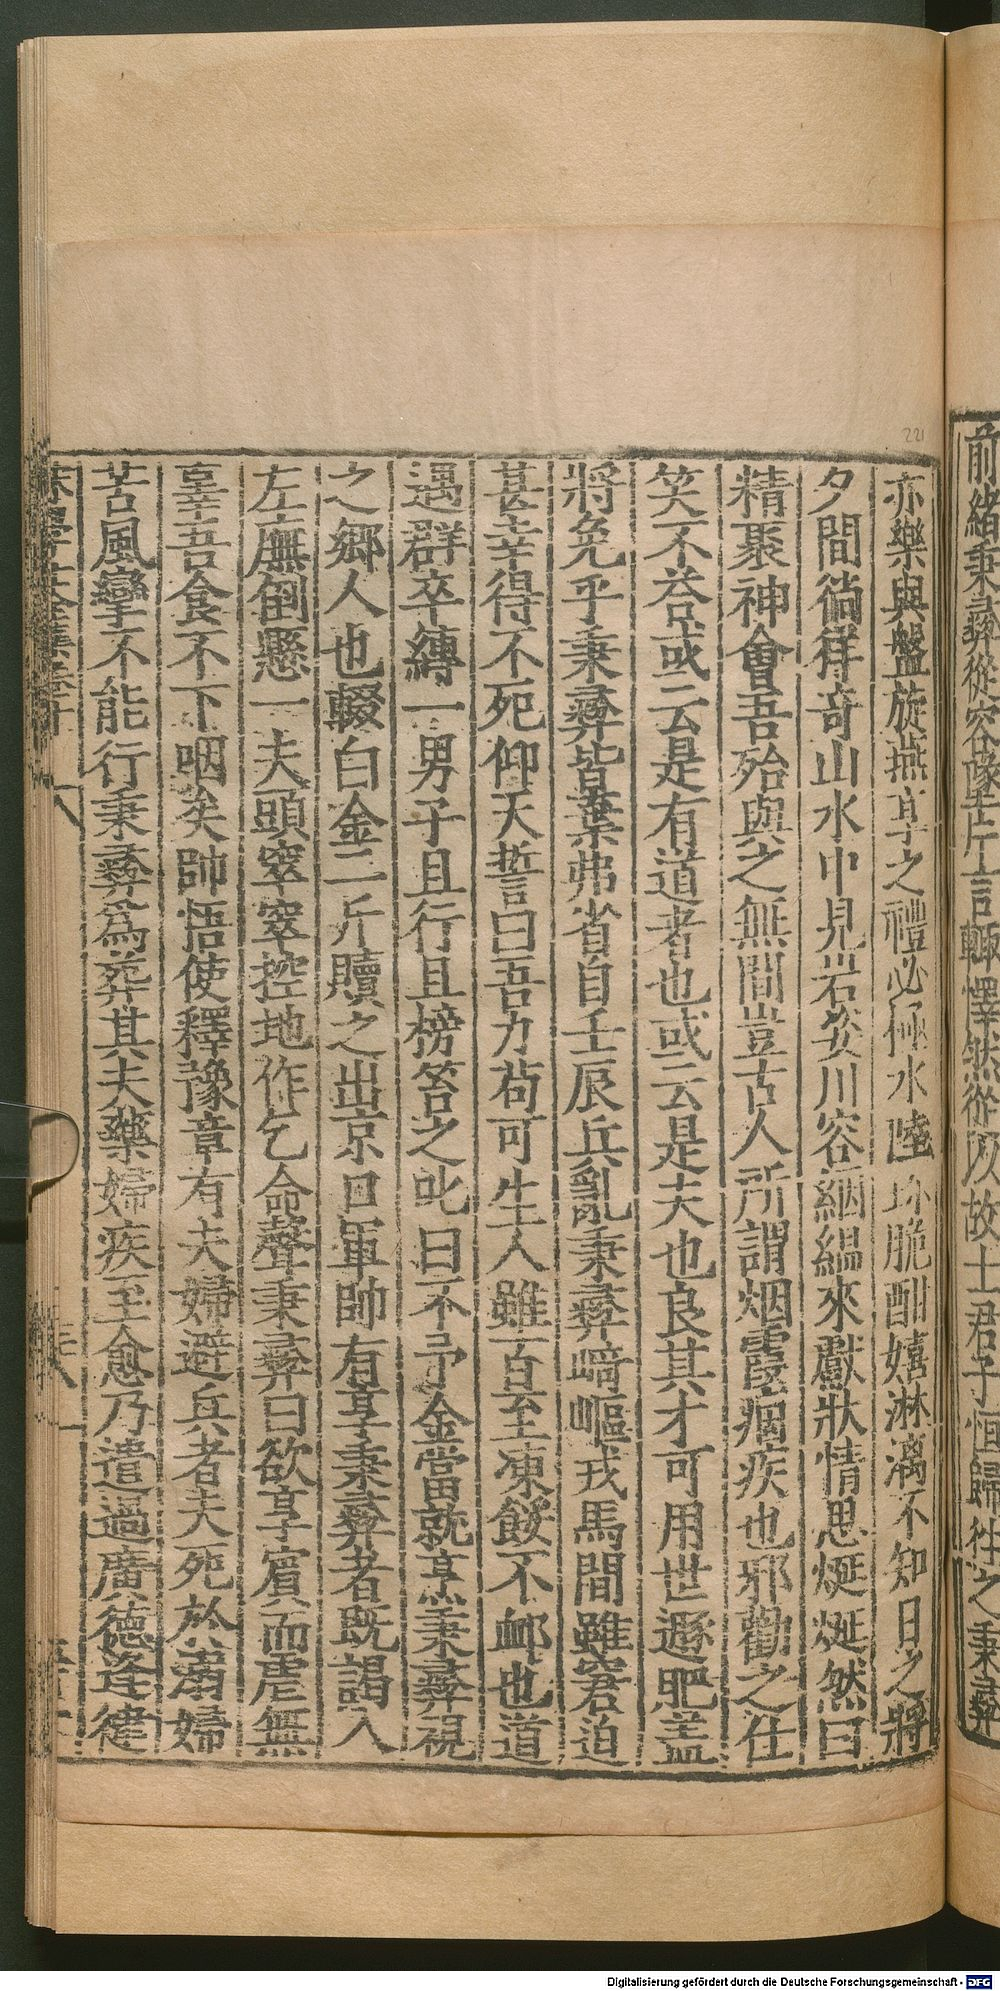 前緒秉彞從容隊片言輙懌然從以故士君子恒歸徃之秉彞
亦樂與盤旋燕享之禮必極水陸珎脆酣嬉淋漓不知日之將
夕間徜徉竒山水中見岩姿川容絪緼來獻狀情思烻烻然曰
精聚神會吾殆與之無間豈古人所謂烟霞痼疾也邪勸之仕
笑不荅或云是有道者也或云是夫也良其才可用世遯肥盖
將免乎秉彞皆棄弗省自壬辰兵亂秉彞﨑嶇戎馬間雖窘迫
甚幸得不死仰天誓曰吾力茍可生人雖百至凍餒不䘏也道
遇群卒縛一男子且行且榜笞之叱曰不予金當就烹秉彞視
之鄉人也輟白金二斤贖之出京口軍帥有享秉彞者既謁入
左廡倒懸一夫頭窣窣控地作乞命聲秉彞曰欲享賓而虐無
辜吾食不下咽矣帥悟使釋豫章有夫婦避兵者夫死於溺婦
苦風攣不能行秉彞爲葬其夫藥婦疾至愈乃遣過廣德逢健